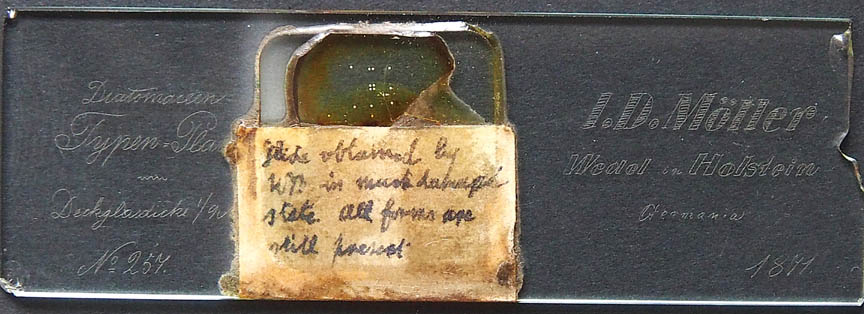 Diatomaceen
Typen-Pla
Deckglasdicke 1/9
No 257.
Slide obtained by
WB. in much damaged
state. All forms are
still present
I.D. Möller
Wedel in Holstein
Germania
1871.